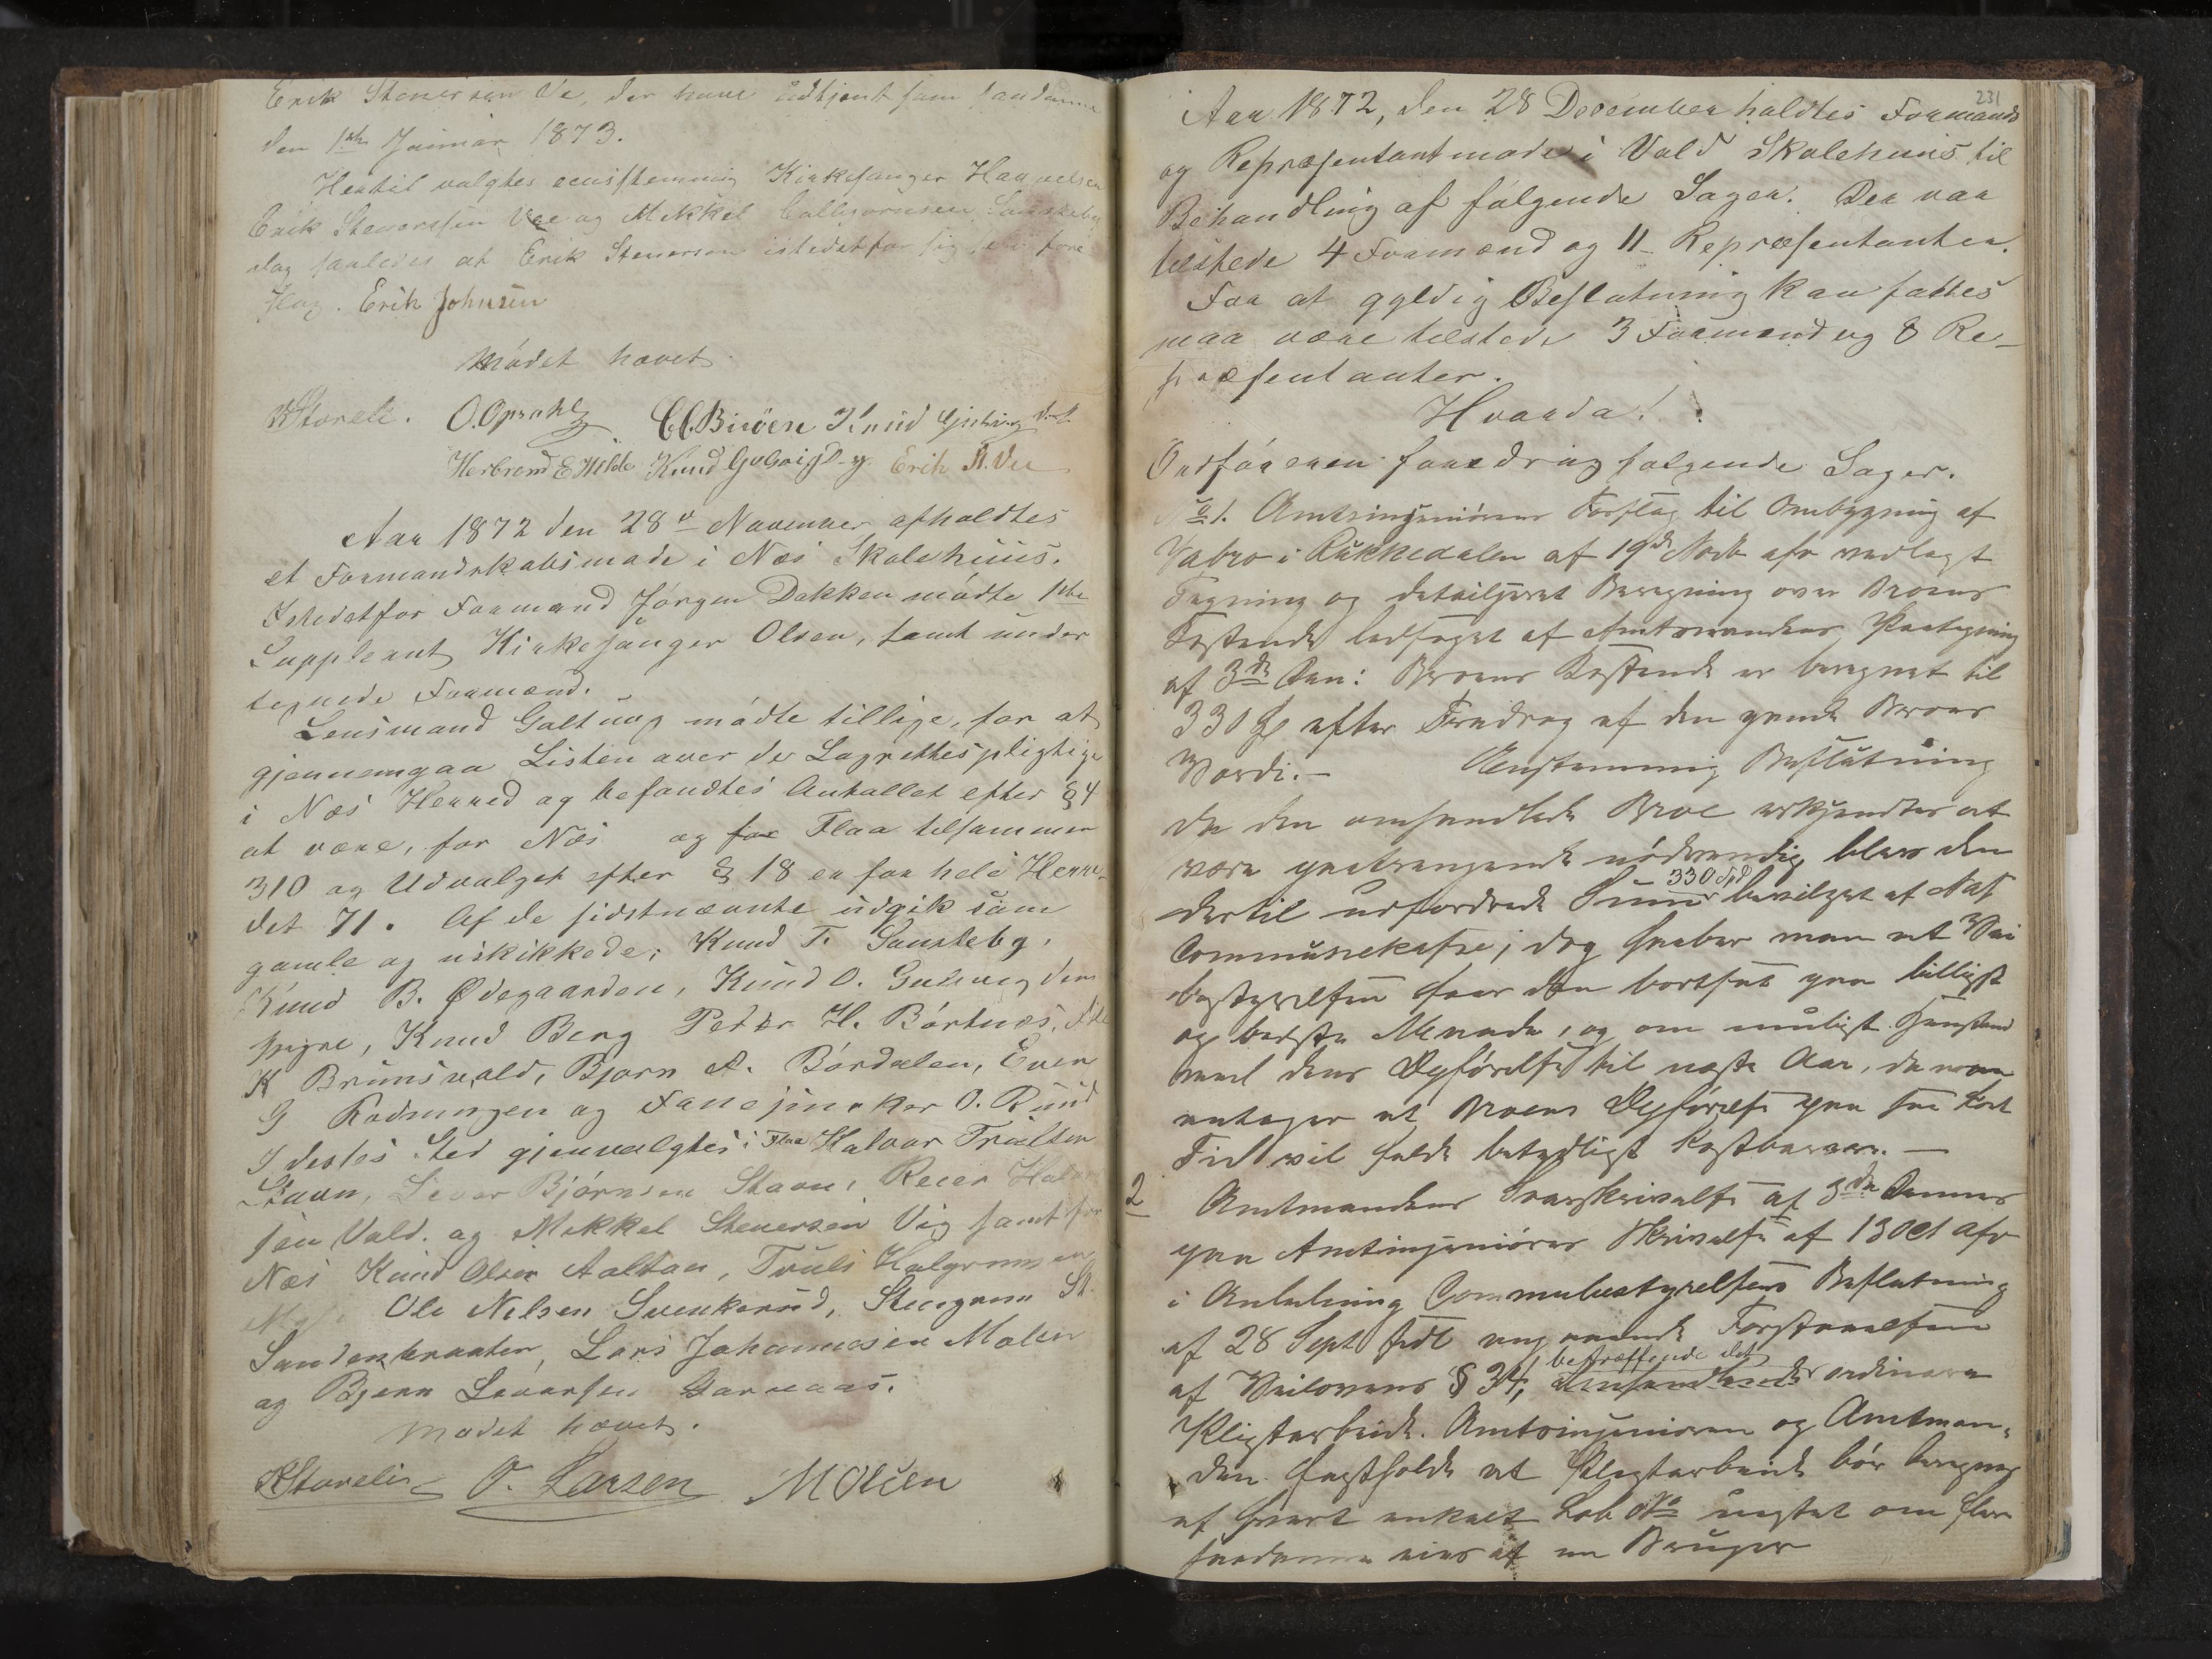 Erik Stenersen Ve, der have udtjent som saadanne
den 1ste Januar 1873.
Hertil valgtes eenstemmig Kirkesanger
Erik Stenersen Vee og Mikkel
dog saaledes at Erik Stenersen istedetfor sig selv fore
slog. Erik Johnsen
Mödet hævet.
O. Opsahl Knud
Herbrand E Hilde Knud Erik St. Vee
Aar 1872 den 28de November afholdtes
et Formandskabsmøde i Næs Skolehuus.
Istedetfor Formand Jörgen Dokken mödte 1ste
Suppleant Kirkesanger Olsen, samt under
tegnede Formænd.
Lensmand Galtung mödte tillige, for at
gjennemgaa Listen over de Lagrettespligtige
i Næs Herred og befandtes Antallet efter § 4
at være, for Næs og for Flaa tilsammen
310 og Udvalget efter § 18 er for hele Herre-
det 71. Af de sidstnævnte udgik som
gamle og uskikkede; Knud T. Sansteby,
Knud B. Ødegaarden, Knud O. Gulsvig den
yngre, Knud Berg Peder H. Börtnæs,
K Brunsvold, Bjørn A. Bördalen, Even
G Rodningen og Fanejunker O. Ruud
I disses Sted gjenvalgtes i Flaa Halvor Trulsen
Stavn, Sevar Björnsen Stavn, Reier Halvor
sen Vold, og Mikkel Stenersen Vig samt for
Næs Knud Olsen Aaltan, Truls Halgrimsen
Ole Nilsen Svenkerud, Stengrim St.
Sandenbraaten, Lars Johannesen Molen
og Bjørn Sevarsen Garnaas.
Mødet hævet.
KStorelie O. Larsen M Olsen
231
Aar 1872, den 28 December holdtes Formands
og Repræsentantmøde i Vold Skolehuus til
Behandling af følgende Sager. Der var
tilstede 4 Formænd og 11 Repræsentanter.
For at gyldig Beslutning kan fattes
maa være tilstede 3 Formænd og 8 Re-
præsentanter.
Hvorda!
Ordføreren foredrog følgende Sager.
No 1. Amtsingeniörens Forslag til Ombygning af
Vabro i Rukkedalen af 19de Novb afv vedlagt
Tegning og detailjeret Beregning over Broens
Kostende ledsaget af Amtmandens Paategning
af 3de Den: Broens Kostende er beregnet til
330 Spd efter Fradrag af den gamle Broes
Værdi. — Eenstemmig Beslutning
Da den omhandlede Broe erkjendtes at
være paatrængende nödvendig blev den
330 Spd
dertil udfordrede Sum bevilget af Næs
Communekasse; dog haaber man at Vei
bestyrelsen faar den bortsat paa billigst
og bedste Maade, og om muligt Henstand
med dens Opförelse til næste Aar, da man
antager at Broens Opförelse paa saa kort
Tid vil falde betydligt kostbarere. —
2 Amtmandens Svarskrivelse af 3de Dennes
paa Amtsingeniörens Skrivelse af 13 Oct afv
i Anledning Communebestyrelsens Beslutning
af 28 Sept sidl angaaende Forstaaelsen
betræffende det
af Veilovens § 34, omhandlende ordinære
Pligtarbeide. Amtsingeniören og Amtman-
den fastholde at Pligtarbeide bör beregnes
af hvert enkelt Löb No uagtet om flere
saadanne eies af en Bruger